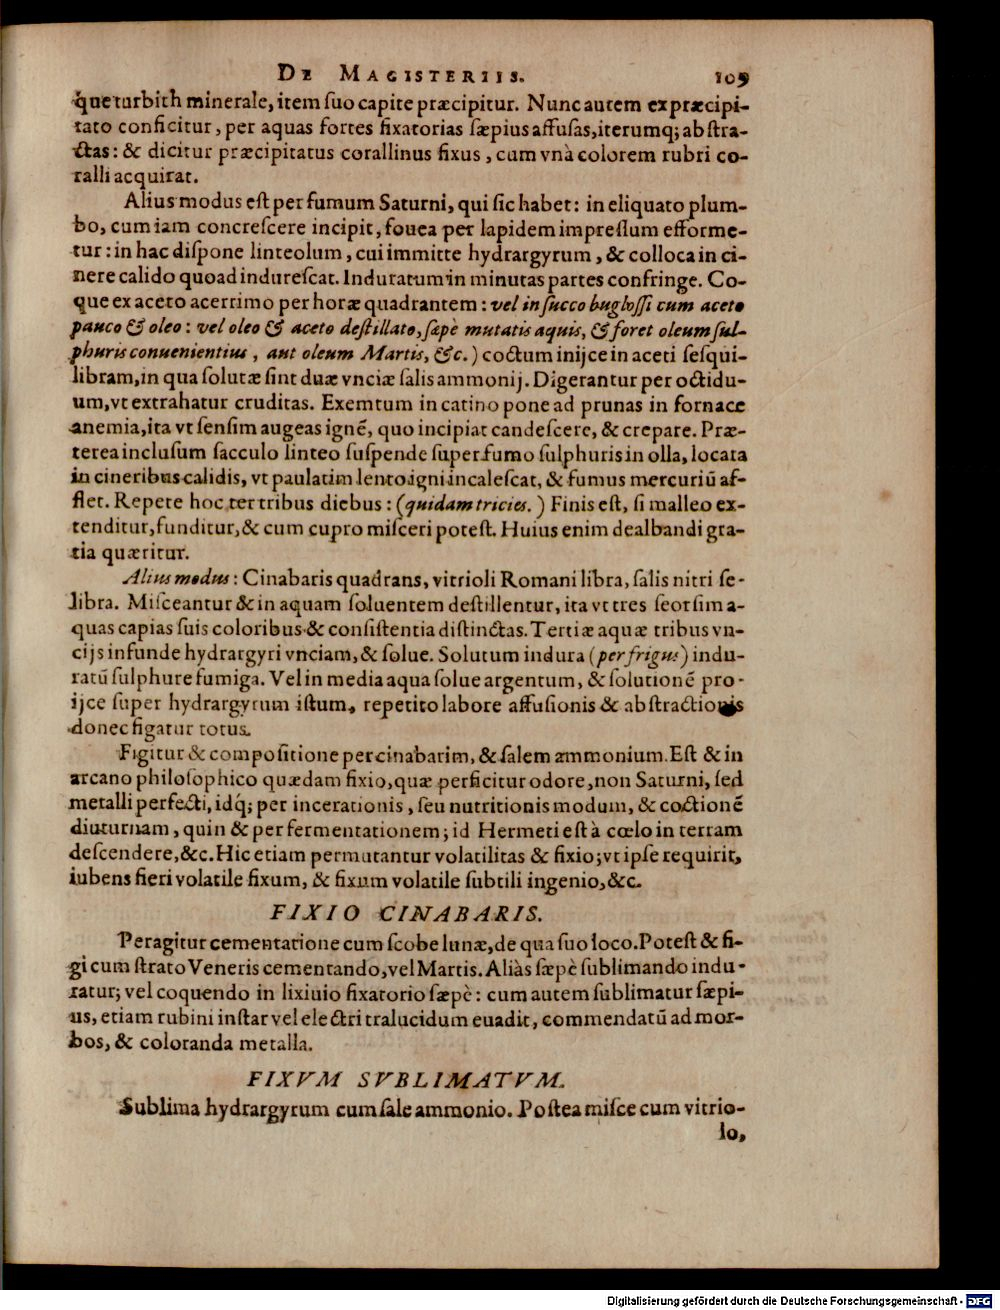 De Magisteriis. 109
que turbith minerale, item suo capite præcipitur. Nunc autem ex præcipi-
tato conficitur, per aquas fortes fixatorias sæpius affusas, iterumq; abstra-
ctas: & dicitur præcipitatus corallinus fixus, cum vnà colorem rubri co-
ralli acquirat.
Alius modus est per fumum Saturni, qui sic habet: in eliquato plum-
bo, cum iam concrescere incipit, fouea per lapidem impressum efforme-
tur: in hac dispone linteolum, cui immitte hydrargyrum, & colloca in ci-
nere calido quoad indurescat. Induratum in minutas partes confringe. Co-
que ex aceto acerrimo per horæ quadrantem: vel in succo buglossi cum aceto
pauco & oleo: vel oleo & aceto destillato, sæpè mutatis aquis, & foret oleum sul-
phuris conuenientius, aut oleum Martis, &c.) coctum inijce in aceti sesqui-
libram, in qua solutæ sint duæ vnciæ salis ammonij. Digerantur per octidu-
um, vt extrahatur cruditas. Exemtum in catino pone ad prunas in fornace
anemia, ita vt sensim augeas ignẽ, quo incipiat candescere, & crepare. Præ-
terea inclusum sacculo linteo suspende super fumo sulphuris in olla, locata
in cineribus calidis, vt paulatim lento igni incalescat, & fumus mercuriũ af-
flet. Repete hoc ter tribus diebus: (quidam tricies.) Finis est, si malleo ex-
tenditur, funditur, & cum cupro misceri potest. Huius enim dealbandi gra-
tia quæritur.
Alius modus: Cinabaris quadrans, vitrioli Romani libra, salis nitri se-
libra. Misceantur & in aquam soluentem destillentur, ita vt tres seorsim a-
quas capias suis coloribus & consistentia distinctas. Tertiæ aquæ tribus vn-
cijs infunde hydrargyri vnciam, & solue. Solutum indura (per frigus) indu-
ratũ sulphure fumiga. Vel in media aqua solue argentum, & solutionẽ pro-
ijce super hydrargyrum istum, repetito labore affusionis & abstractionis
donec figatur totus.
Figitur & compositione per cinabarim, & salem ammonium. Est & in
arcano philosophico quædam fixio, quæ perficitur odore, non Saturni, sed
metalli perfecti, idq; per incerationis, seu nutritionis modum, & coctionẽ
diuturnam, quin & per fermentationem; id Hermeti est à cœlo in terram
descendere, &c. Hic etiam permutantur volatilitas & fixio; vt ipse requirit,
iubens fieri volatile fixum, & fixum volatile subtili ingenio, &c.
FIXIO CINABARIS.
Peragitur cementatione cum scobe lunæ, de qua suo loco. Potest & fi-
gi cum strato Veneris cementando, vel Martis. Aliàs sæpè sublimando indu-
ratur; vel coquendo in lixiuio fixatorio sæpè: cum autem sublimatur sæpi-
us, etiam rubini instar vel electri tralucidum euadit, commendatũ ad mor-
bos, & coloranda metalla.
FIXVM SVBLIMATVM.
Sublima hydrargyrum cum sale ammonio. Postea misce cum vitrio-
lo,
Digitalisierung gefördert durch die Deutsche Forschungsgemeinschaft - DFG